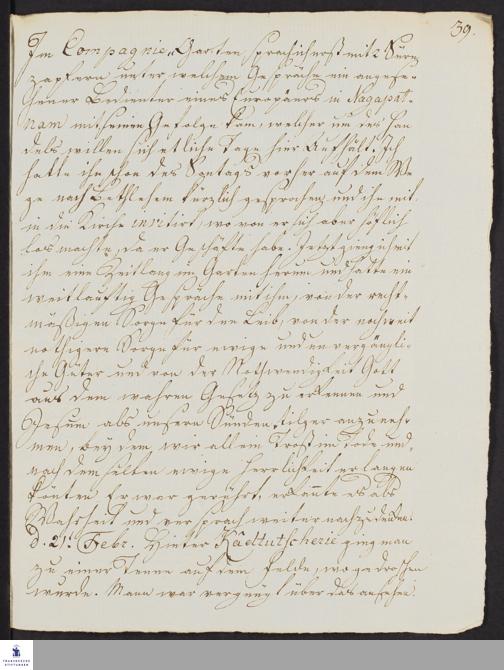 39.
Im Compagnie-Garten sprach ich erst mit 2 Sürn
zapfern unter welchem Gespräche ein angese-
hener Bedienter eines Europäers in Nagapat-
nam mit seinem Gefolge kam, welcher um des Han
dels willen sich etliche Tage hier aufhält. Ich
hatte ihn schon des Sontags vorher auf dem We
ge nach Bethlehem kürzlich gesprochen, und ihn mit
in die Kirche invitirt, wovon er sich aber höflich
los machte, da er Geschäfte habe. Jetzt gieng ich mit
ihm eine Zeitlang im Garten herum und hatte ein
weitläuftig Gespräche mit ihm, von der recht-
mäßigen Sorge für den Leib, von der noch weit
nöthigern Sorge für ewige und unvergängli-
che Güter und von der Nothwendigkeit Gott
aus dem wahren Gesetz zu erkennen und
Jesum als unsern Sündentilger anzuneh-
men, bey dem wir allein Trost im Tode und
nach demselben ewige Herrlichkeit erlangen
könten. Er war gerührt, erkante es als
Wahrheit und versprach weiter nachzudenken.
d. 21. Febr. Hinter Kâdtutscherie ging man
zu einer Tenne auf dem Felde, wo gedroschen
wurde. Mann war vergnügt über das ansehen
FRANCKESCHE
STIFTUNGEN